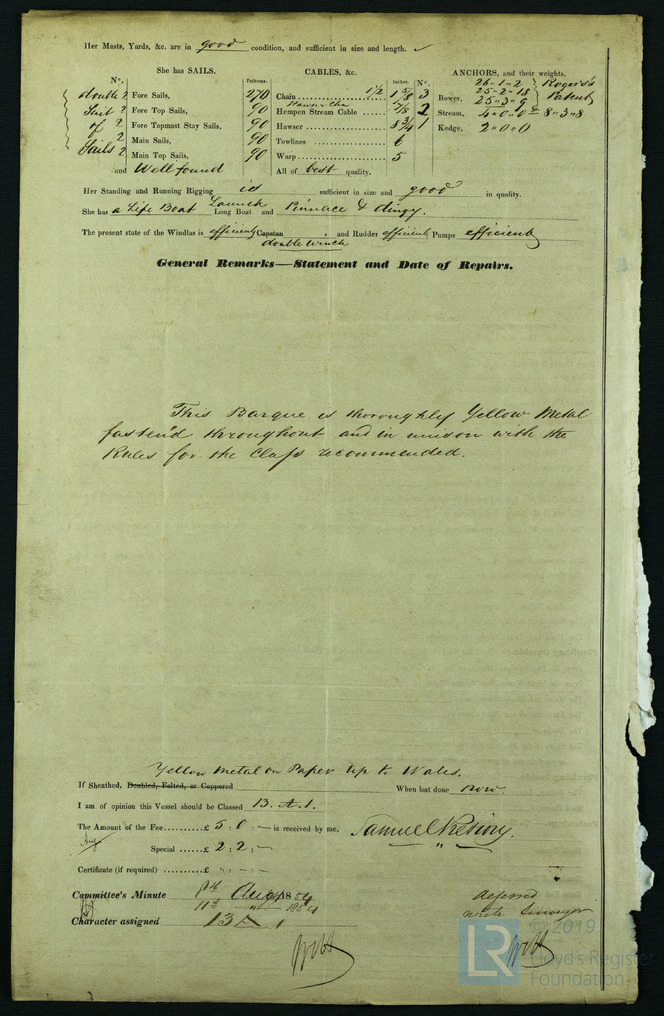 Her Masts, Yards, &c. are in good condition, and sufficient in size and length. ✓
She has SAILS. CABLES, &c. ANCHORS, and their weights.
N°. Fathoms. Inches. N°.
double 2 Fore Sails, 270 Chain 1 1/2 1 5/8 3 Bower, 26 " 1 " 2 Roger's
Suit 2 Fore Top Sails, 90 Hawser Chn 7/8 2 25 " 2 " 18 Patent
Hempen Stream Cable 25 " 3 " 9
of 2 Fore Topmast Stay Sails, 90 Hawser 8 3/4 1 Stream, 4 " 0 " 0 & 8 " 3 " 8
Sails 2 Main Sails, 90 Towlines 6 Kedge, 2 " 0 " 0
2 Main Top Sails, 90 Warp 5
and Well found All of best quality.
Her Standing and Running Rigging is sufficient in size and good in quality.
She has a Life Boat Launch Long Boat and Pinnace & dingy.
The present state of the Windlas is efficient Capstan and Rudder efficient Pumps efficient
double winch
General Remarks—Statement and Date of Repairs.
This Barque is thoroughly Yellow Metal
fasten'd throughout and in unison with the
Rules for the Class recommended.
Yellow Metal on Paper up to Wales.
If Sheathed, Doubled, Felted, or Coppered When last done now
I am of opinion this Vessel should be Classed 13. A.1.
The Amount of the Fee £ 5 : 0 : — is received by me,
Special £ 2 : 2 : —
Certificate (if required) £
Committee's Minute Aug 1854 deferred
11th " 1854 write Surveyor
Character assigned 13 A 1
© 2019
LR Lloyd's Register
Foundation